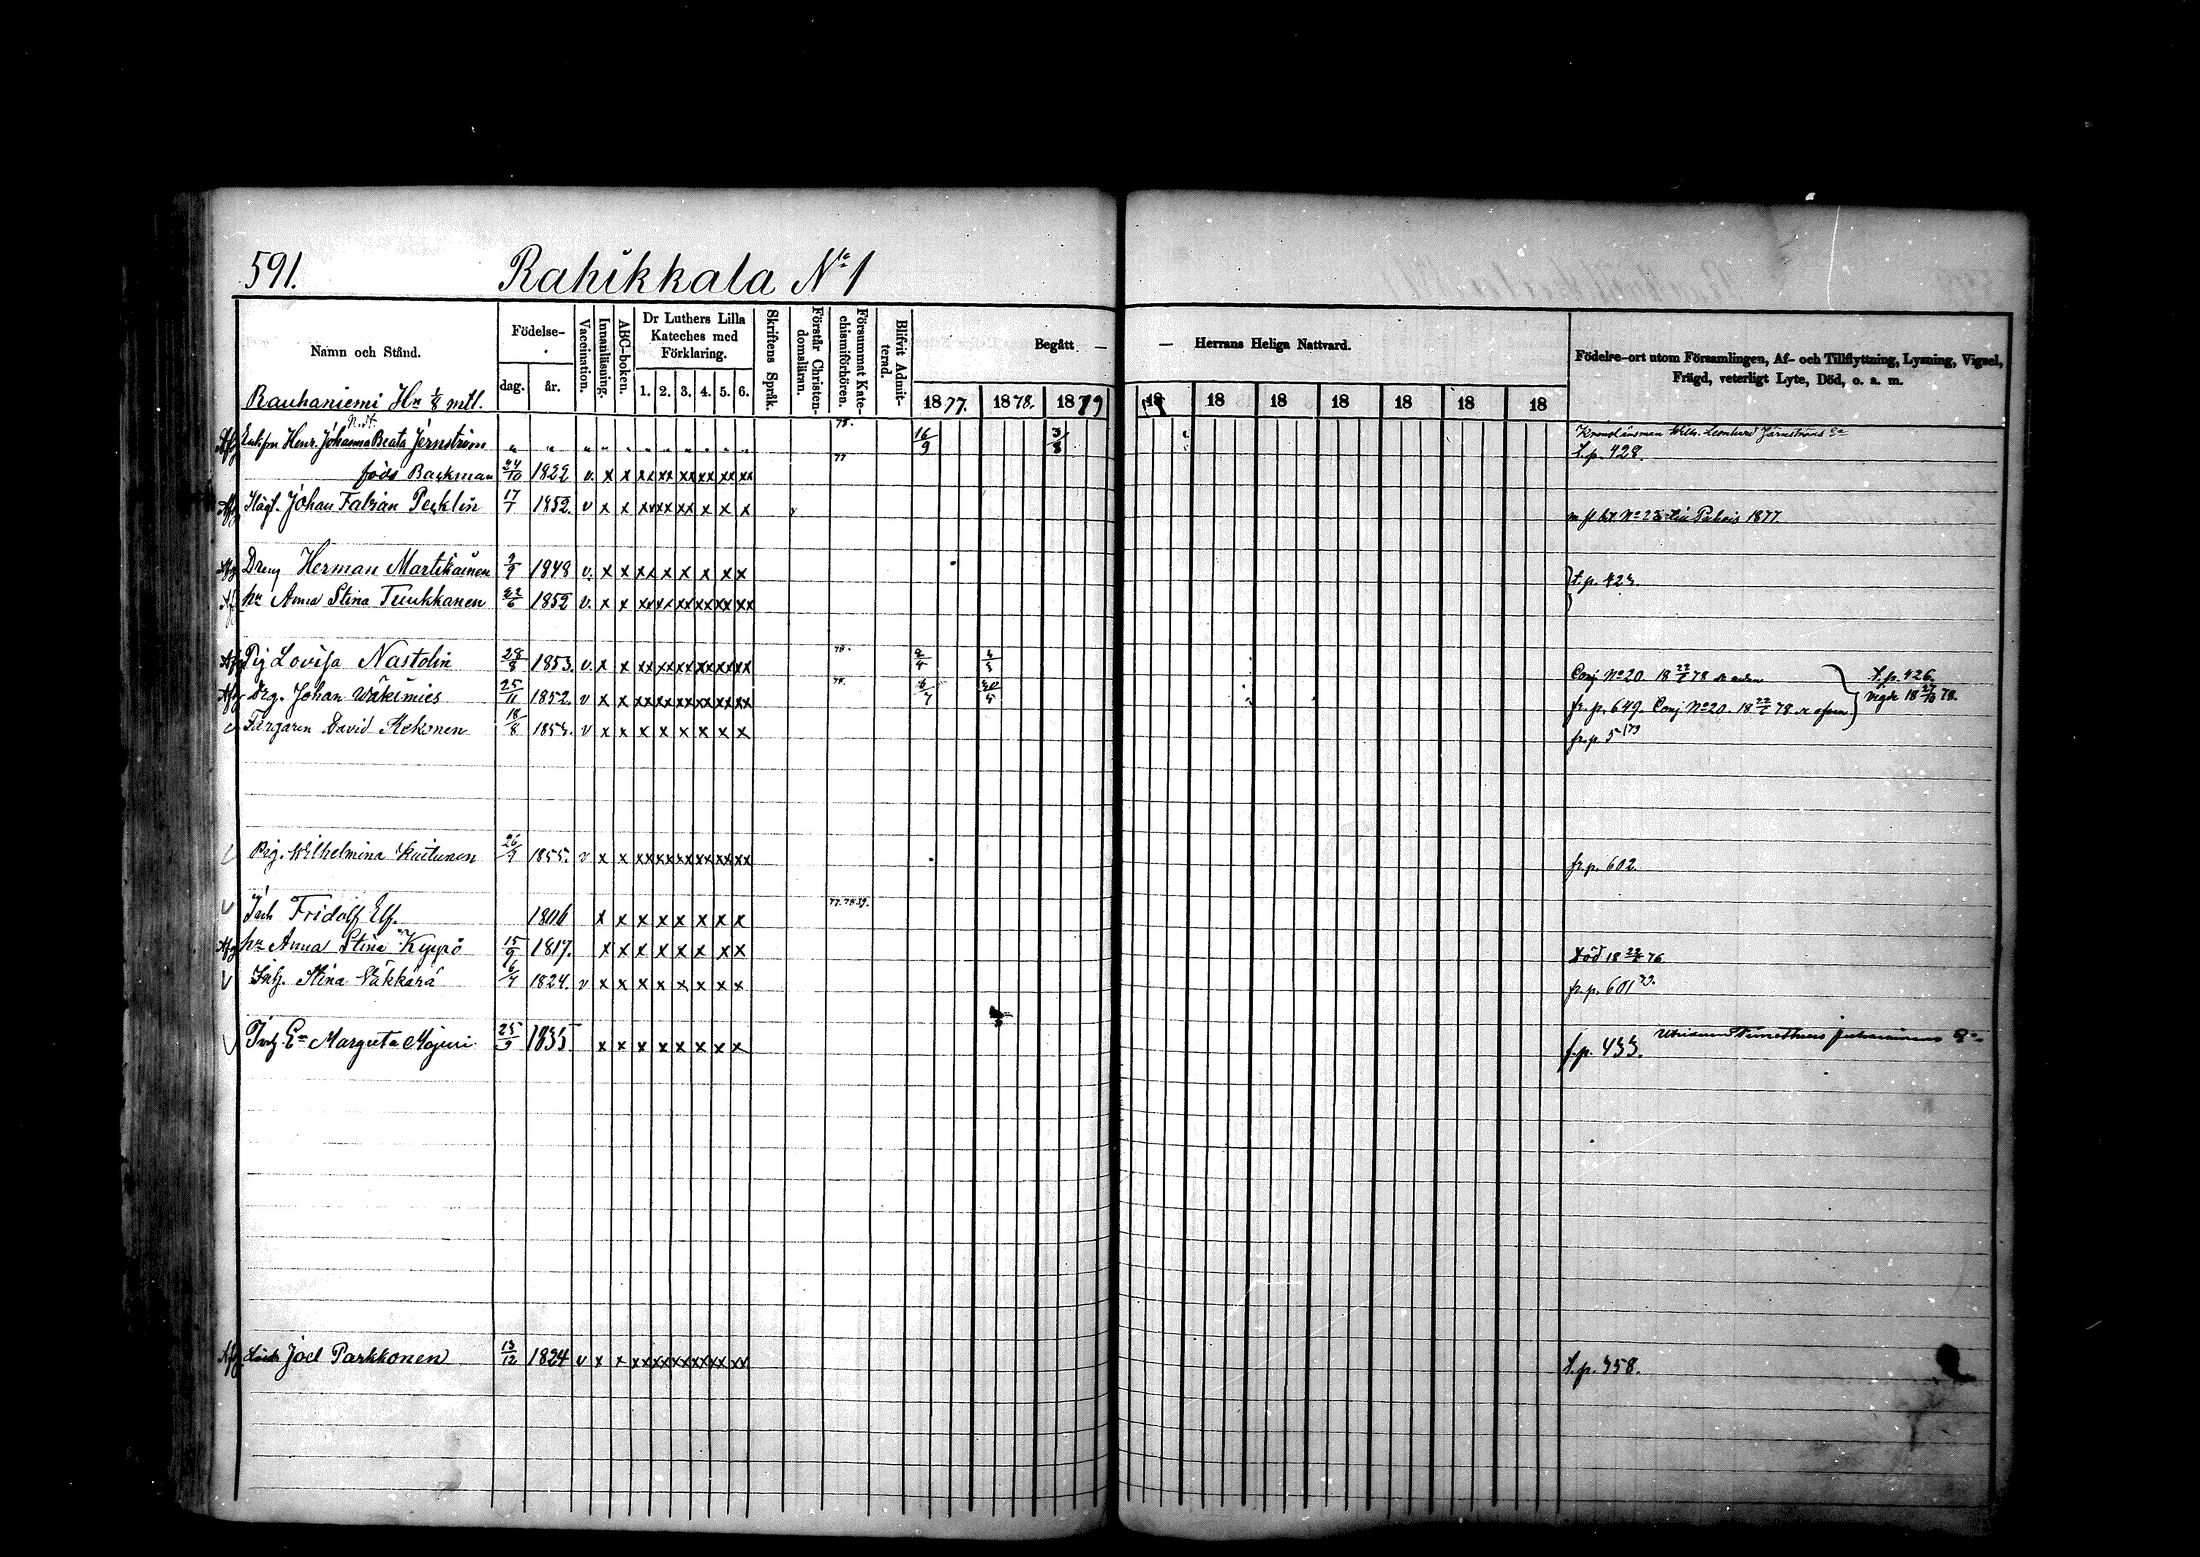 591. Rahikkala No 1
Namn och Stånd.
Födelse-
dag. år.
Vaccination.
Innanläsning.
ABC-boken.
Dr Luthers Lilla Kateches med Förklaring.
1. 2. 3. 4. 5. 6.
Skriftens Språk.
Förstår Christendomsläran.
Försummat Katechismiförhören.
Blifvit Admitterad.
Begått — — Herrans Heliga Nattvard.
1877. 1878. 1879 18 18 18 18 18 18 18
Födelse-ort utom Församlingen, Af- och Tillflyttning, Lysning, Vigsel, Frägd, veterligt Lyte, Död, o. a. m.
Rauhaniemi Hn 1/8 mtl.
Enkefru Henr. Johanna Beata Jernström „ „ „ „ „ „ „ „ „ „ „ 78. 16/9 3/8 Kronolänsman Wilh. Leonhard Järnströms Ea
född Backman 24/10 1822 v. x x xx xx xx xx xx xx 77 t.p. 428.
Hägt. Johan Fabian Pecklin 17/7 1852. v x x xx xx xx x x x 1877.
Dreng Herman Martikainen 9/9 1848 v. x x xx x x x x x t.p. 423.
hu Anna Stina Tuukkanen 22/6 1852 v. x x xx xx xx xx xx xx
Pig Lovisa Nastolin 28/8 1853. v. x x xx xx xx xx xx xx 78. Conj No 20 18 22/8 78 t.p. 426.
Drg. Johan Wäkimies 25/11 1852. v x x xx xx xx xx xx xx 78. 6/7 fr. p. 649. Conj No 20. 18 22/8 78 vigde 18 27/10 78.
Färgaren David Kekonen 18/8 1853. v x x x x x x x x fr. p. 5 /79
Pig. Wilhelmina Kuitunen 26/9 1855. v x x xx xx xx xx xx xx fr. p. 602.
Fridolf Elf. 1806 x x x x x x x x 77. 78. 79.
hu Anna Stina Kyyrö 15/9 1817. x x x x x x x x Död 18 76
Inh. Stina Väkkärä 6/7 1824. v x x x x x x x x fr. p. 601 79.
Inh. Ea Margreta Majuri 25/9 1835 x x x x x x x x f.p. 433.
Joel Parkkonen 13/12 1824 v x x xx xx xx xx xx xx t.p. 358.